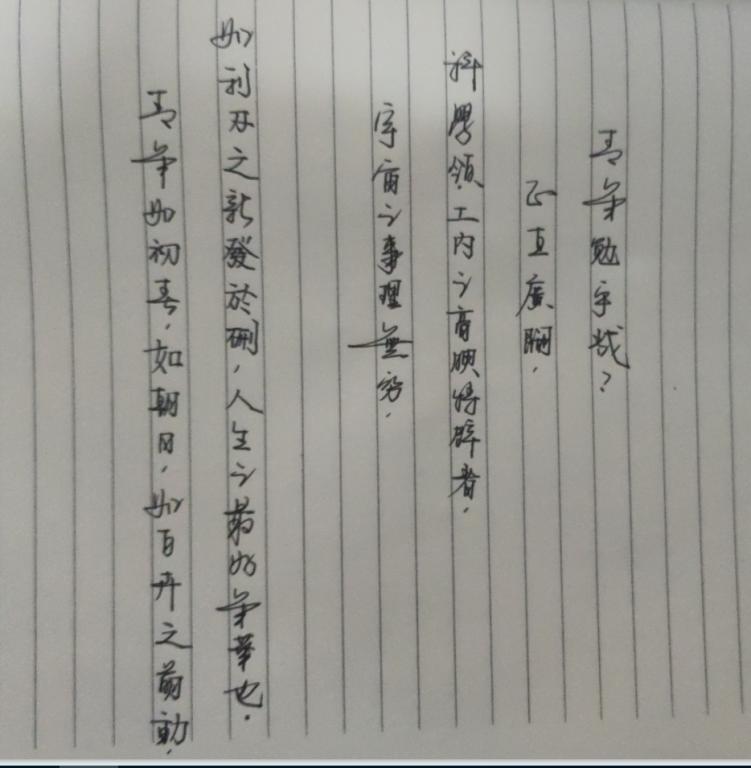 青年如初春，如朝日，如百卉之萌動，
如利刃之新發於硎，人生之最好年華也．
宇宙之事理無窮．
科學領土内之膏腴待辟者．
正直廣闊．
青年勉乎哉？